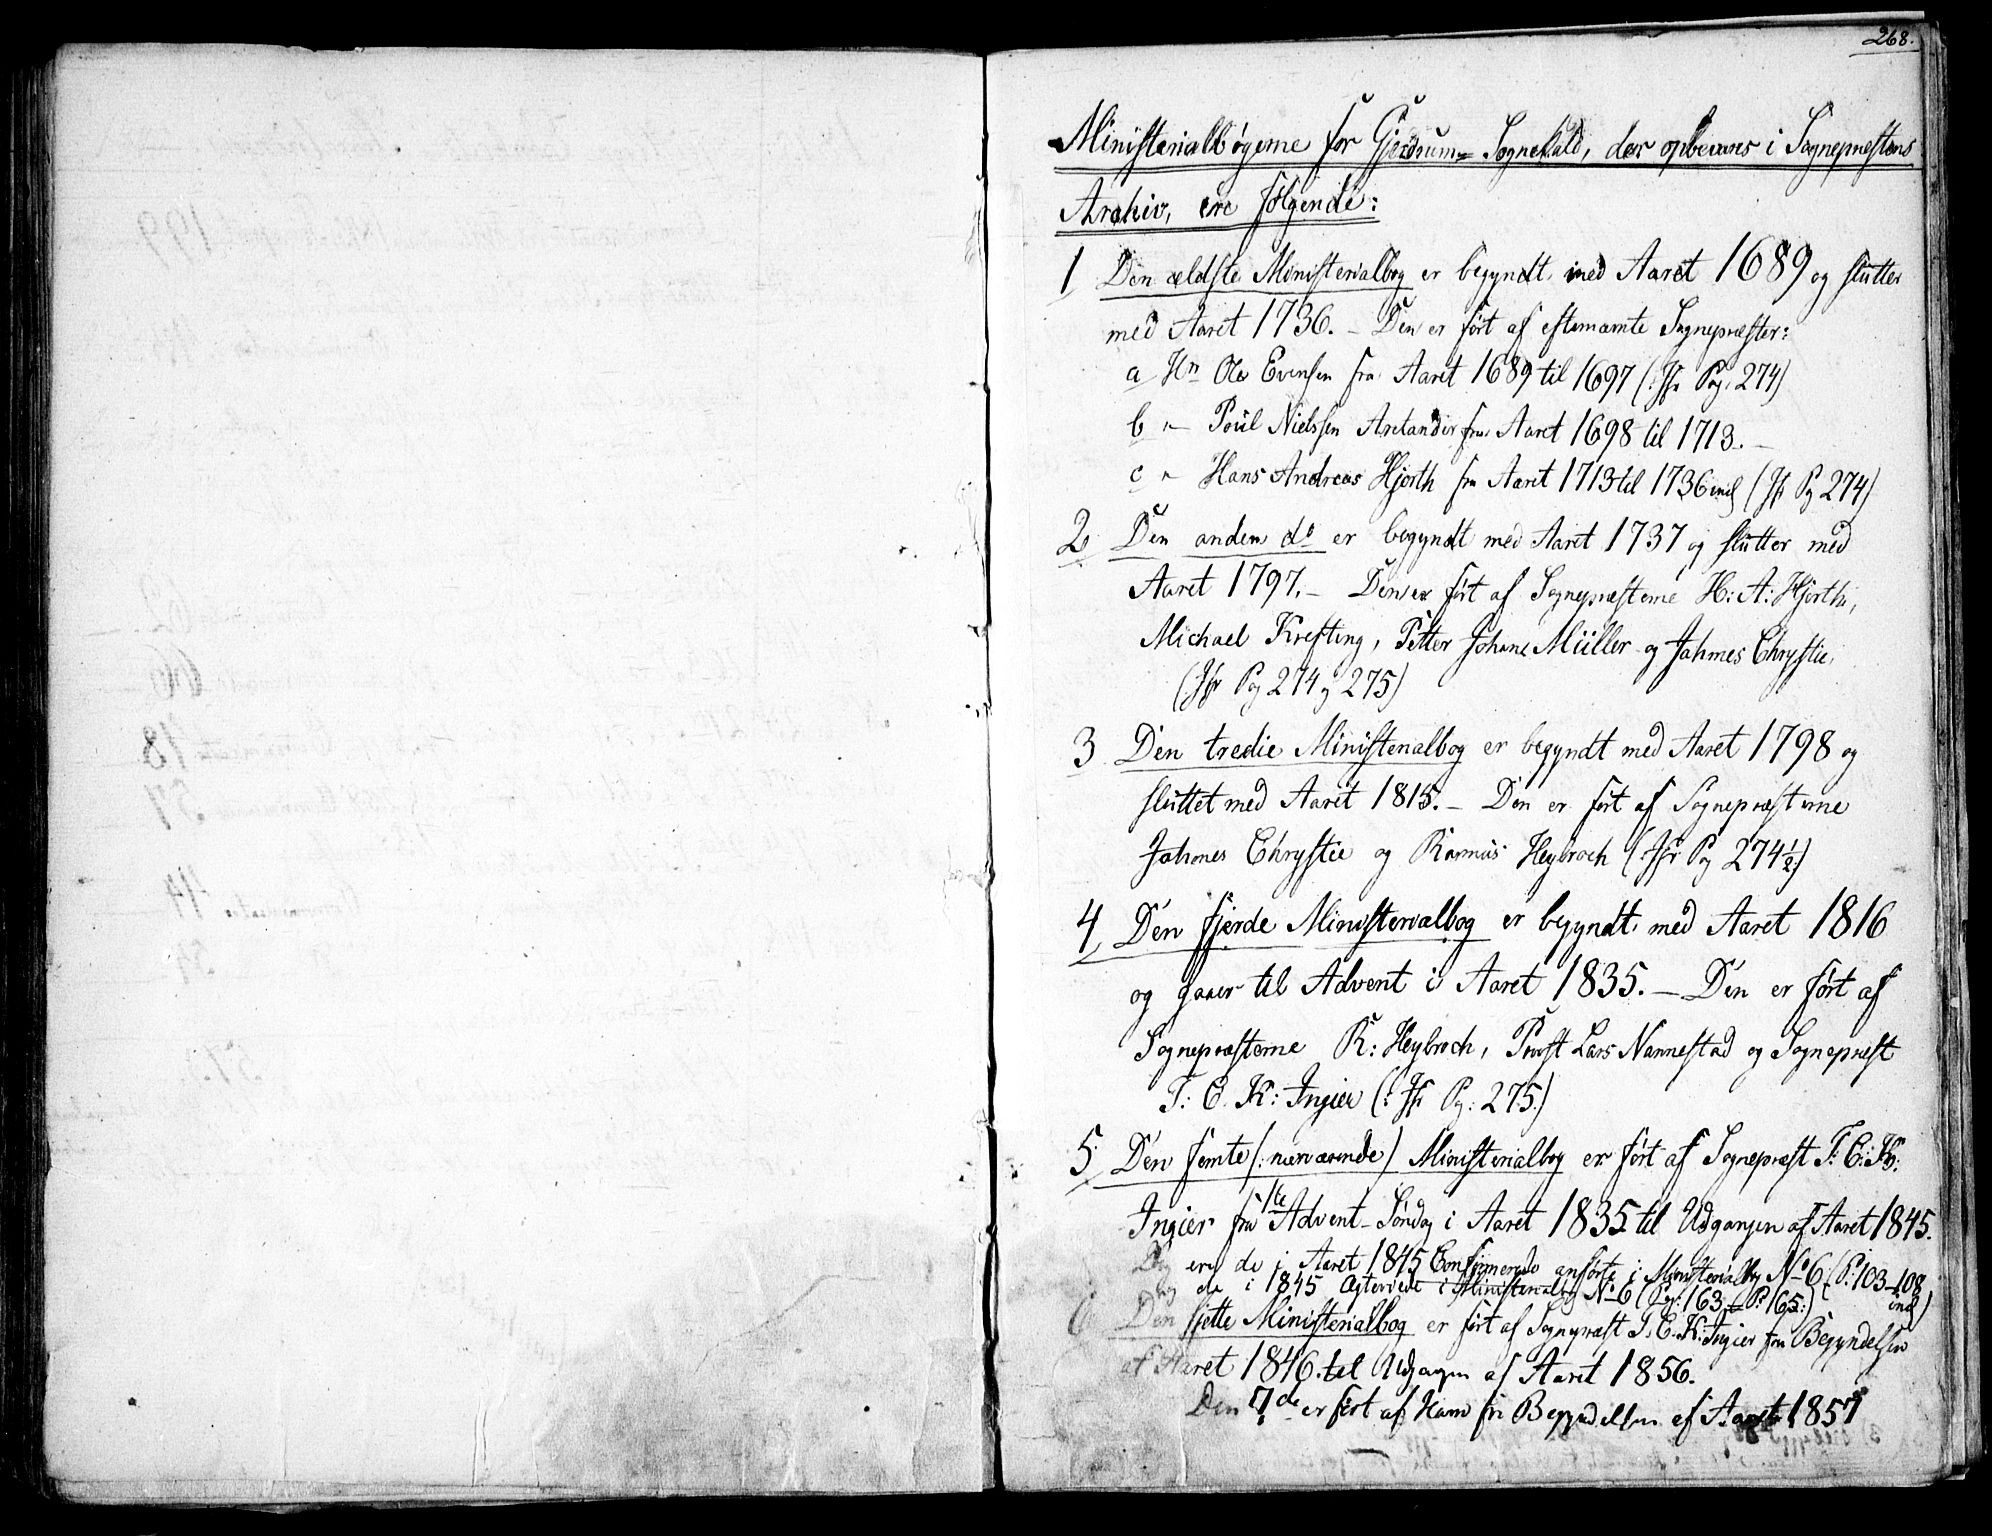 268.
Ministerialbøgerne for Gjerdrums Sognekald, der opbevares i Sognepræstens
Archiv, ere følgende:
1 Den ældste Ministerialbog er begyndt med Aaret 1689 og slutter
med Aaret 1736. – Den er ført af efternævnte Sognepræster:
a Hr Ole Evensen fra Aaret 1689 til 1697 (: Jfr Pag: 274)
b " – Poul Nielssen Aretander fra Aaret 1698 til 1713. –
c " Hans Andreas Hjorth fra Aaret 1713 til 1736 incl (Jfr Pag 274)
2 Den anden do er begyndt med Aaret 1737 og slutter med
Aaret 1797. – Den er ført af Sognepræsterne H: A: Hjorth,
Michael Krefting, Petter Johan Müller og Jahmes Chrystie,
(Jfr Pag 274 og 275)
3 Den tredie Ministerialbog er begyndt med Aaret 1798 og
sluttet med Aaret 1815. – Den er ført af Sognepræsterne
Jahmes Chrystie og Rasmus Heybroch (: Jfr Pag 274½:)
4 Den fjerde Ministerialbog er begyndt med Aaret 1816
og gaaer til Advent i Aaret 1835. – Den er ført af
Sognepræsterne R: Heybroch, Provst Lars Nannestad og Sognepræst
T: C. K: Ingier (: Jfr Pag: 275:)
5 Den femte (: nærværende) Ministerialbog er ført af Sognepræst T: C: K:
Ingier fra 1te Advent-Søndag i Aaret 1835 til Udgangen af Aaret 1845.
Dog ere de i Aaret 1845 Confirmerede anførte i Ministerialbog No 6 (P: 103–108
og de i 1845 Ægteviede i Ministerialbog No 6 (Pag: 163 – P: 165:) incl)
6 Den sjette Ministerialbog er ført af Sognepræst T. C. K: Ingier fra Begyndelsen
af Aaret 1846. til Udgangen af Aaret 1856.
Den 7de er ført af Ham fra Begyndelsen af Aaret 1857